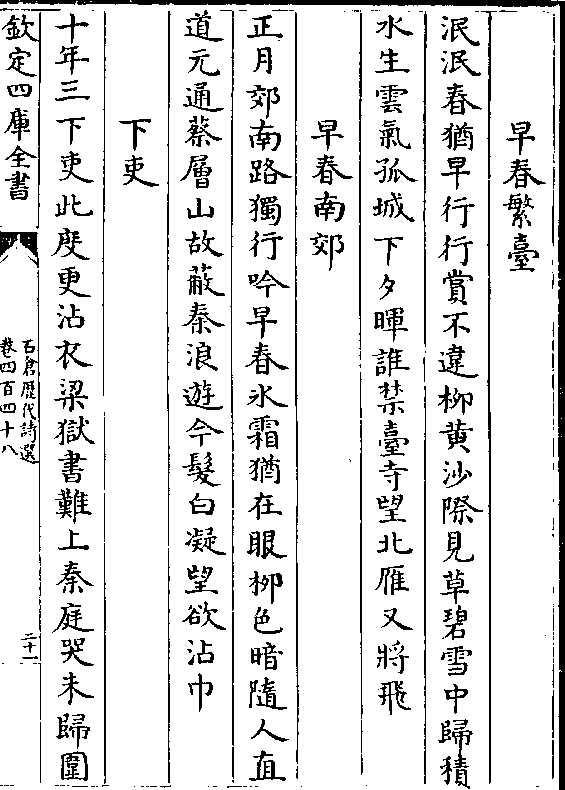 早春繁臺
泯泯春猶早行行賞不違柳黄沙際見草碧雪中歸積
水生雲氣孤城下夕暉誰禁臺寺望北雁又將飛
早春南郊
正月郊南路獨行吟早春氷霜猶在眼柳色暗隨人直
道元通蔡層山故蔽秦浪遊今髮白凝望欲沾巾
下吏
十年三下吏此度更沾衣梁獄書難上秦庭哭未歸圍
欽定四庫全書
石倉歷代詩選
卷四百四十八
二十一